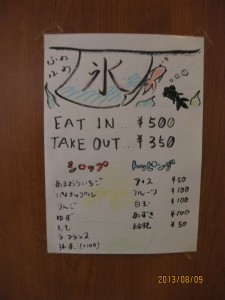 ふわ
ふわ
氷
EAT IN.. ¥500
TAKE OUT.. ¥350
シロップ
トッピング
あまおういちご
アイス ¥50
パイナップル
フルーツ ¥100
りんご
白玉 ¥100
ゆず
あずき ¥100
¥50
ラ・フランス
(+100)
2013/08/09